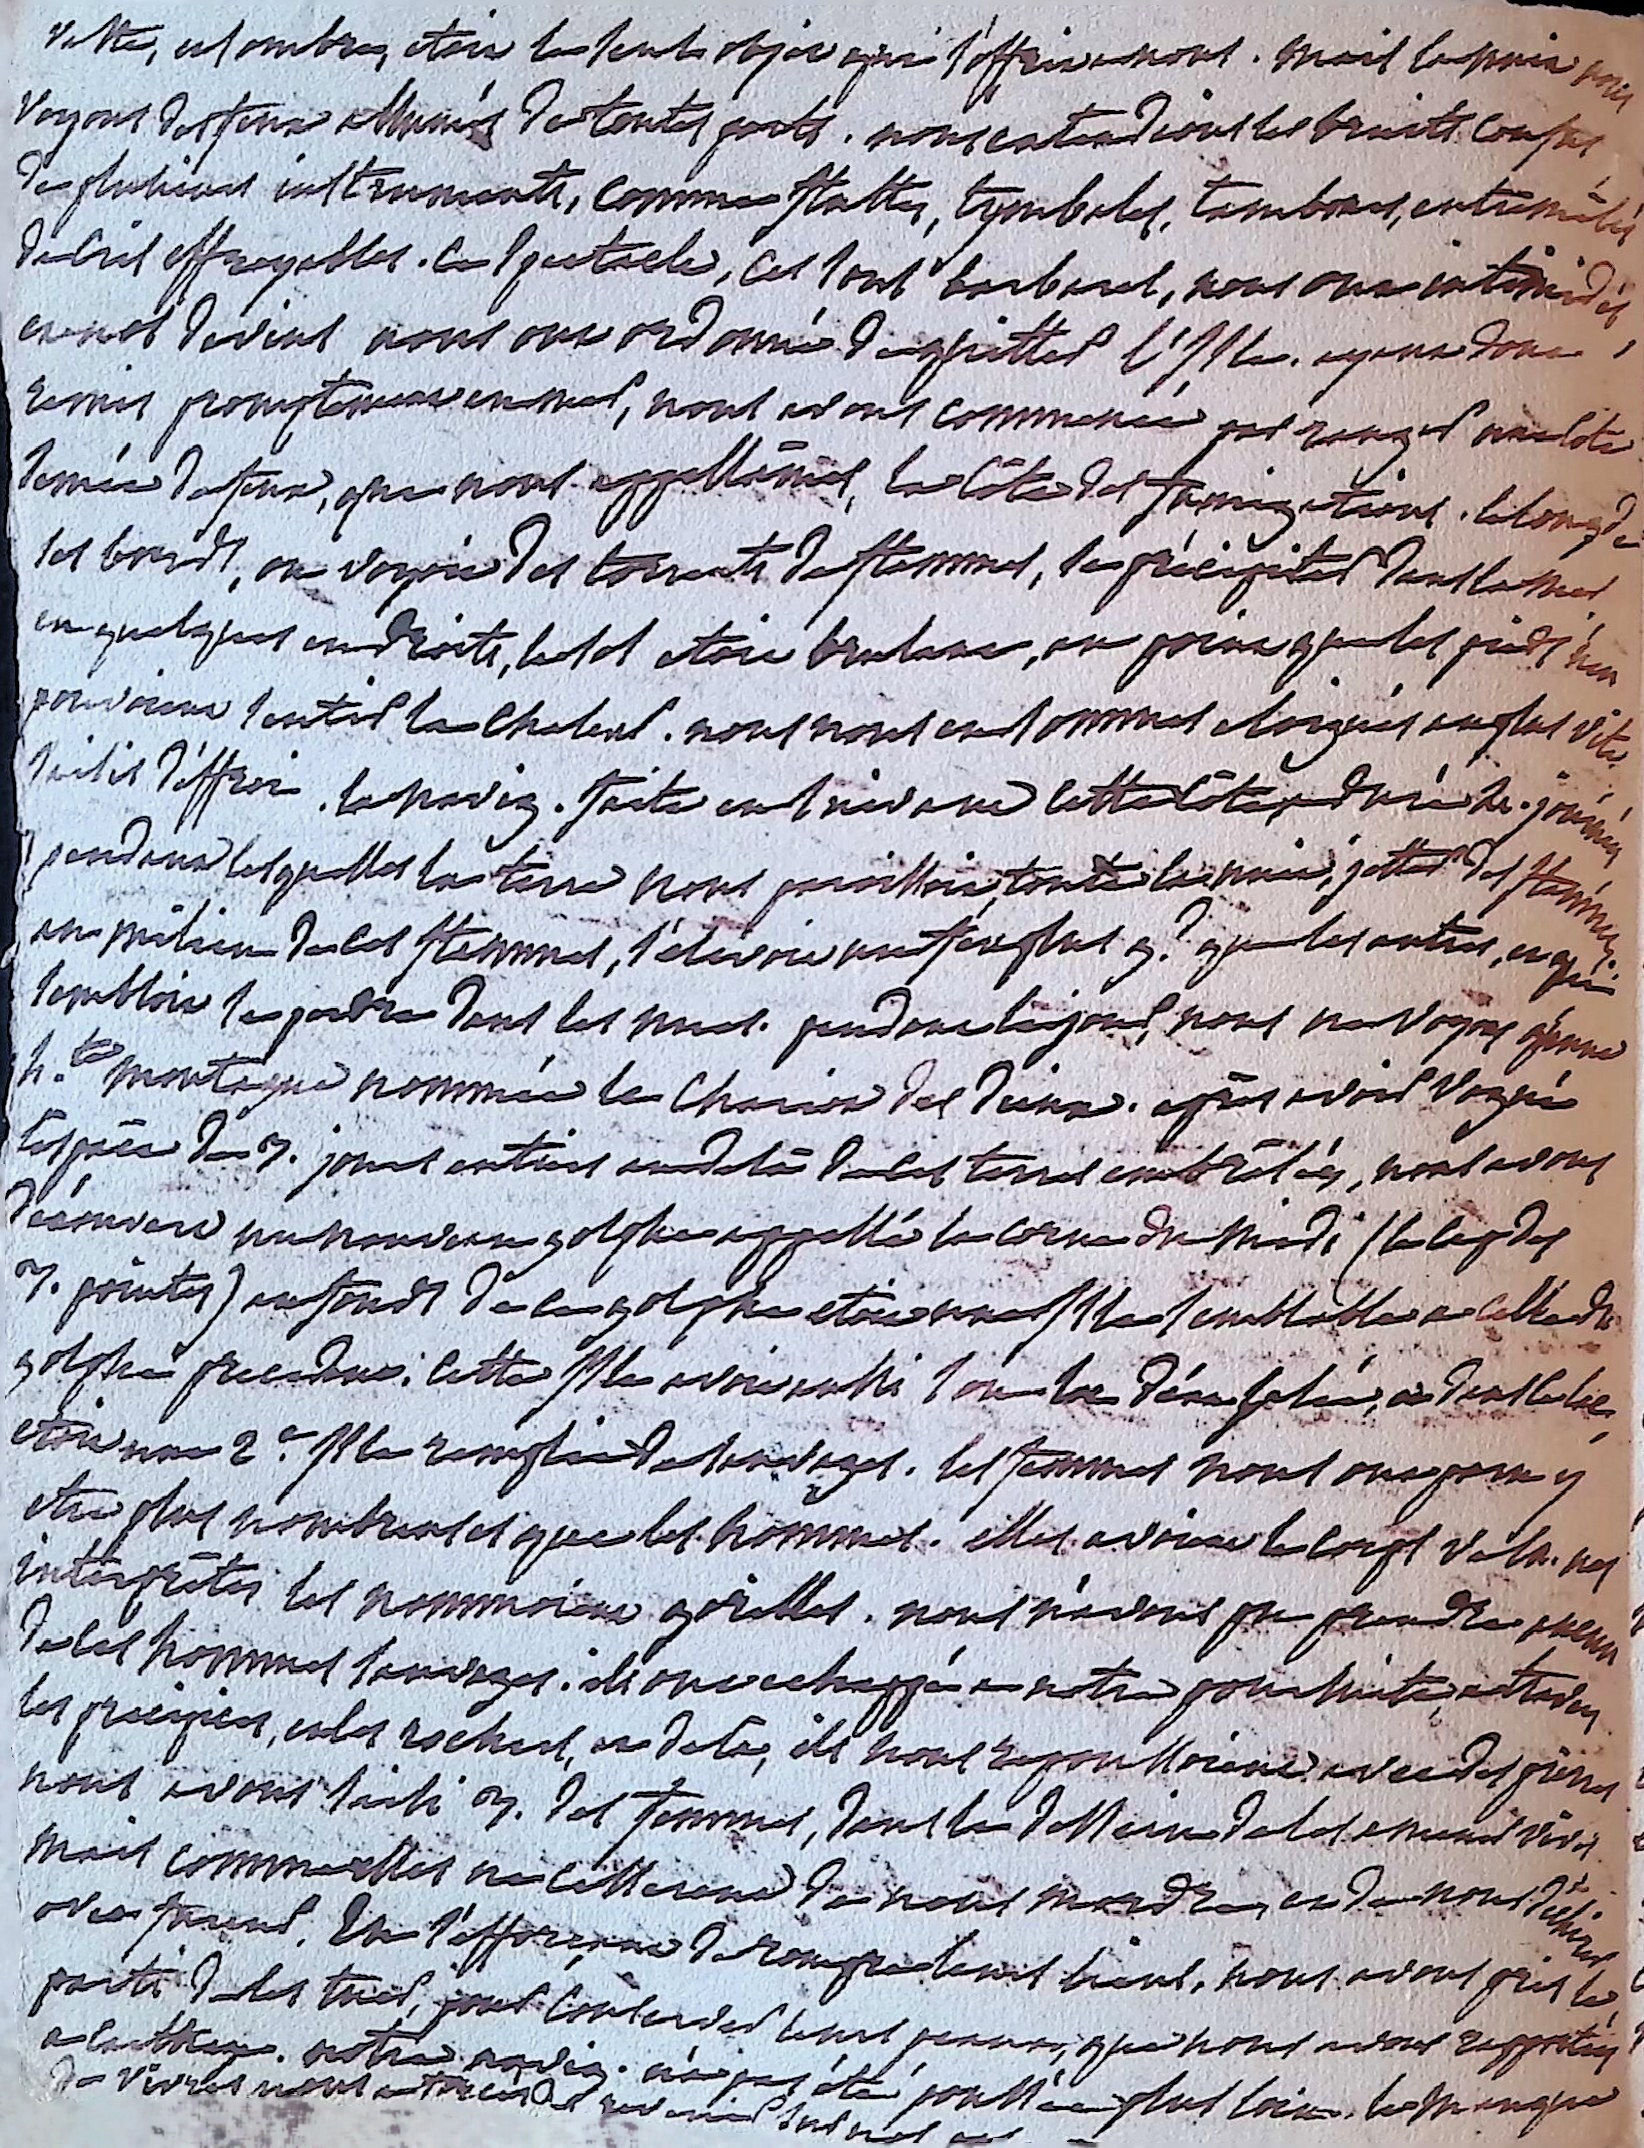 vaste, et ombre, etoit le seul objet qui s'offrit a nous. mais la nuit nous
voyons des feux allumés de toutes parts. nous entendions les bruits confus
de plusieurs instruments, comme fluttes, tymbales, tambours, entremêlés
de cris effroyables. ce spectacle, ces sons barbares, nous ont intimidés
et nos devins nous ont ordonné de quitter l'Isle. ayant donc
remis promptement en mer, nous avons commencé par ranger une côte
semée de feux, que nous appellâmes, la Côte des fumigations. le long de
ses bords, on voyoit des torrents de flammes, se précipiter dans la mer.
en quelques endroits, le sol etoit brulant, au point que les pieds n'en
pouvoient sentir la chaleur. nous nous en sommes eloignés au plus vîte
saisis d'effroi. la navig. faite en suivant cette côte, a duré 4. journées
pendant lesquelles la terre nous paroissoit, toute la nuit, jetter des flammes.
au milieu de ces flammes, s'elevoit un feu plus gd. que les autres, et qui
sembloit se perdre dans les nues. pendant le jour, nous ne voyons qu'une
h.te montagne nommée le Chariot des Dieux. après avoir vogué
l'espace de 3. jours entiers au delà de ces terres embrâsées, nous avons
découvert un nouveau golphe appellé la corne du Midi (le cap des
3. pointes) au fonds de ce golphe etoit une Isle semblable a celle du
golphe precedent. cette Isle avoit aussi son lac d'eau salée, et dans ce lac,
etoit une 2e. Isle remplie de sauvages. les femmes nous ont paru y
etre plus nombreuses que les hommes. elles avoient le corps velu. nos
interprêtes les nommoient gorilles. nous n'avons pu prendre aucun
de ces hommes sauvages. ils ont echappé a notre poursuite, a travers
les précipices, et les rochers, et de là, ils nous repoussoient avec des pierres
nous avons saisi 3. des femmes, dans le dessein de les amener vives
mais comme elles ne cesserent de nous mordre, et de nous déchirer
avec fureur, en s'efforçant de rompre leurs liens, nous avons pris le
parti de les tuer, pour conserver leurs peaux, que nous avons rapportées
a carthage. notre navig. n'a pas été poussée plus loin. le manque
de vivres nous a forcés de revenir sur nos